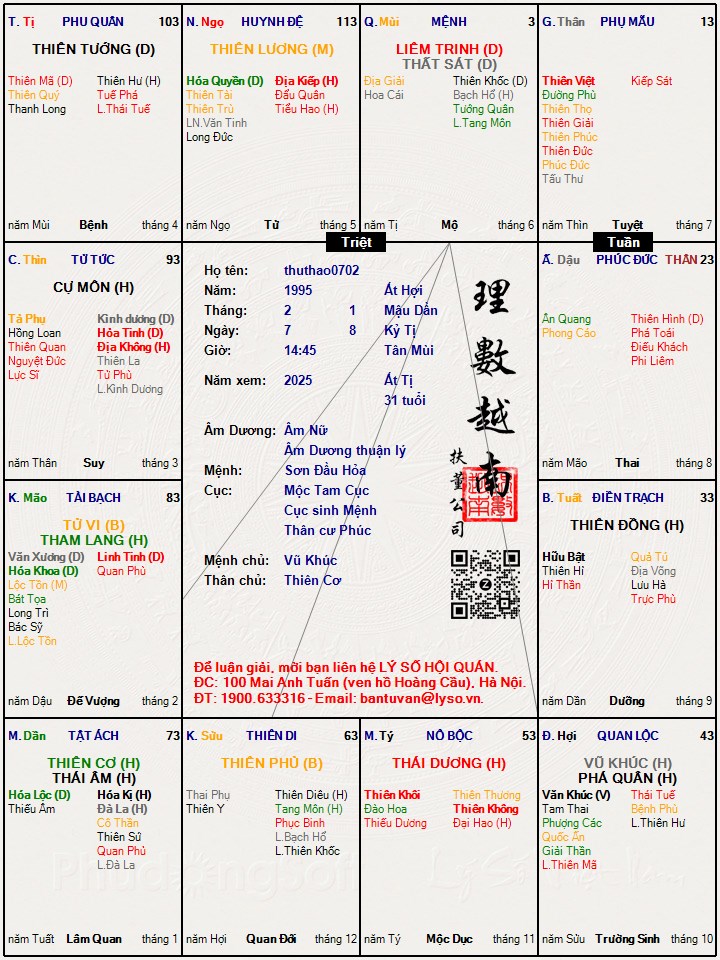 T. Tị PHU QUÂN 103
THIÊN TƯỚNG (D)
Thiên Mã (D) Thiên Hư (H)
Thiên Quý Tuế Phá
Thanh Long L.Thái Tuế
năm Mùi Bệnh tháng 4
N. Ngọ HUYNH ĐỆ 113
THIÊN LƯƠNG (M)
Hóa Quyền (D) Địa Kiếp (H)
Thiên Tài Đẩu Quân
Thiên Trù Tiểu Hao (H)
LN.Văn Tinh
Long Đức
năm Ngọ Tử tháng 5
Q. Mùi MỆNH 3
LIÊM TRINH (D)
THẤT SÁT (D)
Địa Giải Thiên Khốc (D)
Hoa Cái Bạch Hổ (H)
Tướng Quân
L.Tang Môn
năm Tị Mộ tháng 6
G. Thân PHỤ MẪU 13
Thiên Việt Kiếp Sát
Đường Phù
Thiên Thọ
Thiên Giải
Thiên Phúc
Thiên Đức
Phúc Đức
Tấu Thư
năm Thìn Tuyệt tháng 7
Triệt
Tuần
C. Thìn TỬ TỨC 93
CỰ MÔN (H)
Tả Phụ Kình dương (D)
Hồng Loan Hỏa Tinh (D)
Thiên Quan Địa Không (H)
Nguyệt Đức Thiên La
Lực Sĩ Tử Phù
L.Kình Dương
năm Thân Suy tháng 3
Họ tên: thuthao0702
Năm: 1995 Ất Hợi
Tháng: 2 1 Mậu Dần
Ngày: 7 8 Kỷ Tị
Giờ: 14:45 Tân Mùi
Năm xem: 2025 Ất Tị
31 tuổi
Âm Dương: Âm Nữ
Âm Dương thuận lý
Mệnh: Sơn Đầu Hỏa
Cục: Mộc Tam Cục
Cục sinh Mệnh
Thân cư Phúc
Mệnh chủ: Vũ Khúc
Thân chủ: Thiên Cơ
理
數
越
南
扶
董
公
司
Để luận giải, mời bạn liên hệ LÝ SỐ HỘI QUÁN.
ĐC: 100 Mai Anh Tuấn (ven hồ Hoàng Cầu), Hà Nội.
ĐT: 1900.633316 - Email: bantuvan@lyso.vn.
Ấ. Dậu PHÚC ĐỨC THÂN 23
Ân Quang Thiên Hình (D)
Phong Cáo Phá Toái
Điếu Khách
Phi Liêm
năm Mão Thai tháng 8
K. Mão TÀI BẠCH 83
TỬ VI (B)
THAM LANG (H)
Văn Xương (D) Linh Tinh (D)
Hóa Khoa (D) Quan Phù
Lộc Tồn (M)
Bát Tọa
Long Trì
Bác Sỹ
L.Lộc Tồn
năm Dậu Đế Vượng tháng 2
B. Tuất ĐIỀN TRẠCH 33
THIÊN ĐỒNG (H)
Hữu Bật Quả Tú
Thiên Hỉ Địa Võng
Hỉ Thần Lưu Hà
Trực Phù
năm Dần Dưỡng tháng 9
M. Dần TẬT ÁCH 73
THIÊN CƠ (H)
THÁI ÂM (H)
Hóa Lộc (D) Hóa Kị (H)
Thiếu Âm Đà La (H)
Cô Thần
Thiên Sứ
Quan Phủ
L.Đà La
năm Tuất Lâm Quan tháng 1
K. Sửu THIÊN DI 63
THIÊN PHỦ (B)
Thai Phụ Thiên Diêu (H)
Thiên Y Tang Môn (H)
Phục Binh
L.Bạch Hổ
L.Thiên Khốc
năm Hợi Quan Đới tháng 12
M. Tý NÔ BỘC 53
THÁI DƯƠNG (H)
Thiên Khôi Thiên Thương
Đào Hoa Thiên Không
Thiếu Dương Đại Hao (H)
năm Tý Mộc Dục tháng 11
Đ. Hợi QUAN LỘC 43
VŨ KHÚC (H)
PHÁ QUÂN (H)
Văn Khúc (V) Thái Tuế
Tam Thai Bệnh Phù
Phượng Các L.Thiên Hư
Quốc Ấn
Giải Thần
L.Thiên Mã
năm Sửu Trường Sinh tháng 10